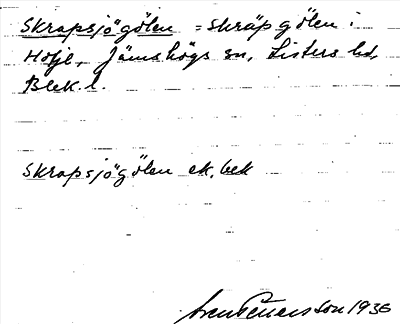 Skrapsjögölen = skräpgölen i
Holje, Jämshögs sn, Listers hd,
Blek. l.
Skrapsjögölen ek. bek
Sven Benson 1936